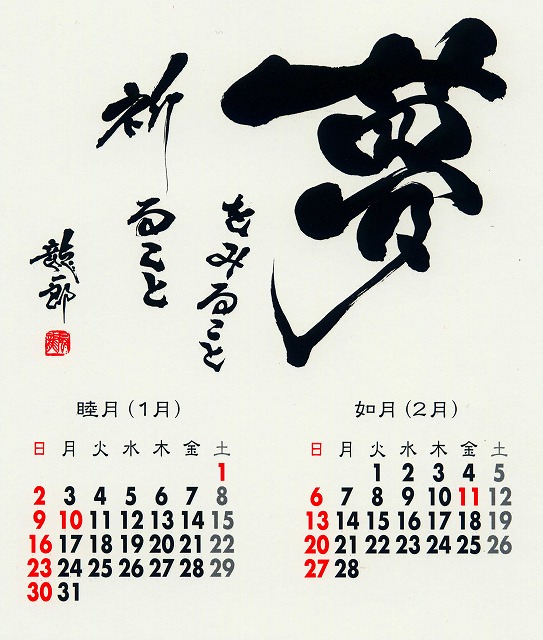 夢
をみること
祈
ること
龍一郎
睦月(1月)
日 月 火 水 木 金 土
1
2 3 4 5 6 7 8
9 10 11 12 13 14 15
16 17 18 19 20 21 22
23 24 25 26 27 28 29
30 31
如月(2月)
日 月 火 水 木 金 土
1 2 3 4 5
6 7 8 9 10 11 12
13 14 15 16 17 18 19
20 21 22 23 24 25 26
27 28